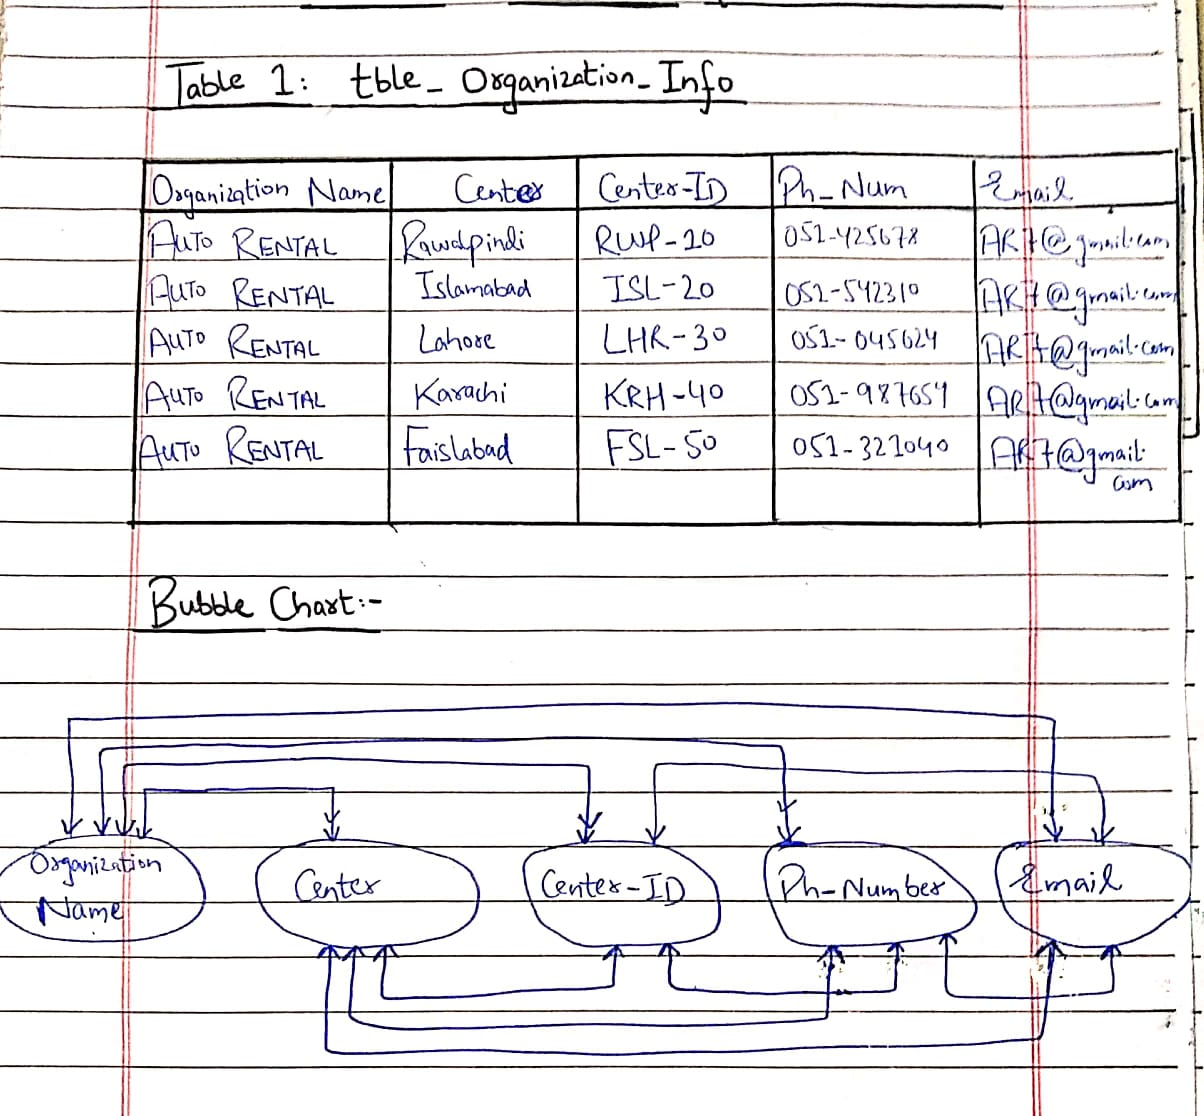 Table 1: tble_Organization_Info
Organization Name Center Center-ID Ph_Num Email
AUTO RENTAL Rawalpindi RWP-10 051-425678 AR7@gmail.com
AUTO RENTAL Islamabad ISL-20 051-542310 AR7@gmail.com
AUTO RENTAL Lahore LHR-30 051-045624 AR7@gmail.com
AUTO RENTAL Karachi KRH-40 051-987654 AR7@gmail.com
AUTO RENTAL Faislabad FSL-50 051-321040 AR7@gmail.
com
Bubble Chart:-
Organization
Name
Center
Center-ID
Ph-Number
Email